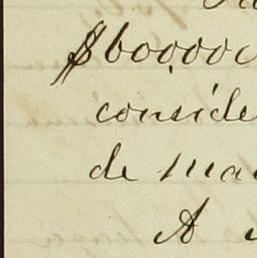 $60,000
conside
de ma
A